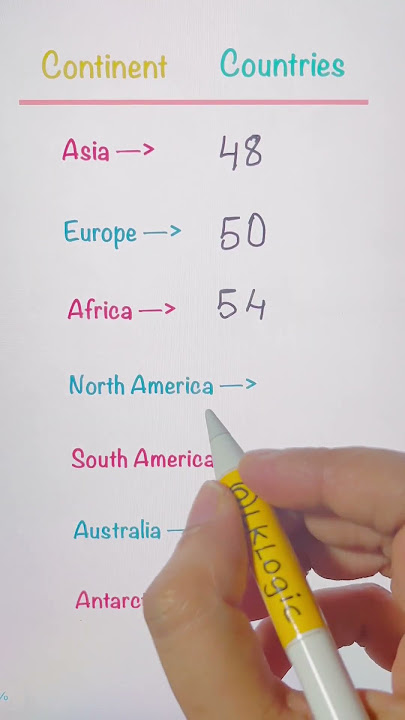 Continent Countries
Asia —> 48
Europe —> 50
Africa —> 54
North America —>
South America
Australia —
Antarc
@LKLogic
%